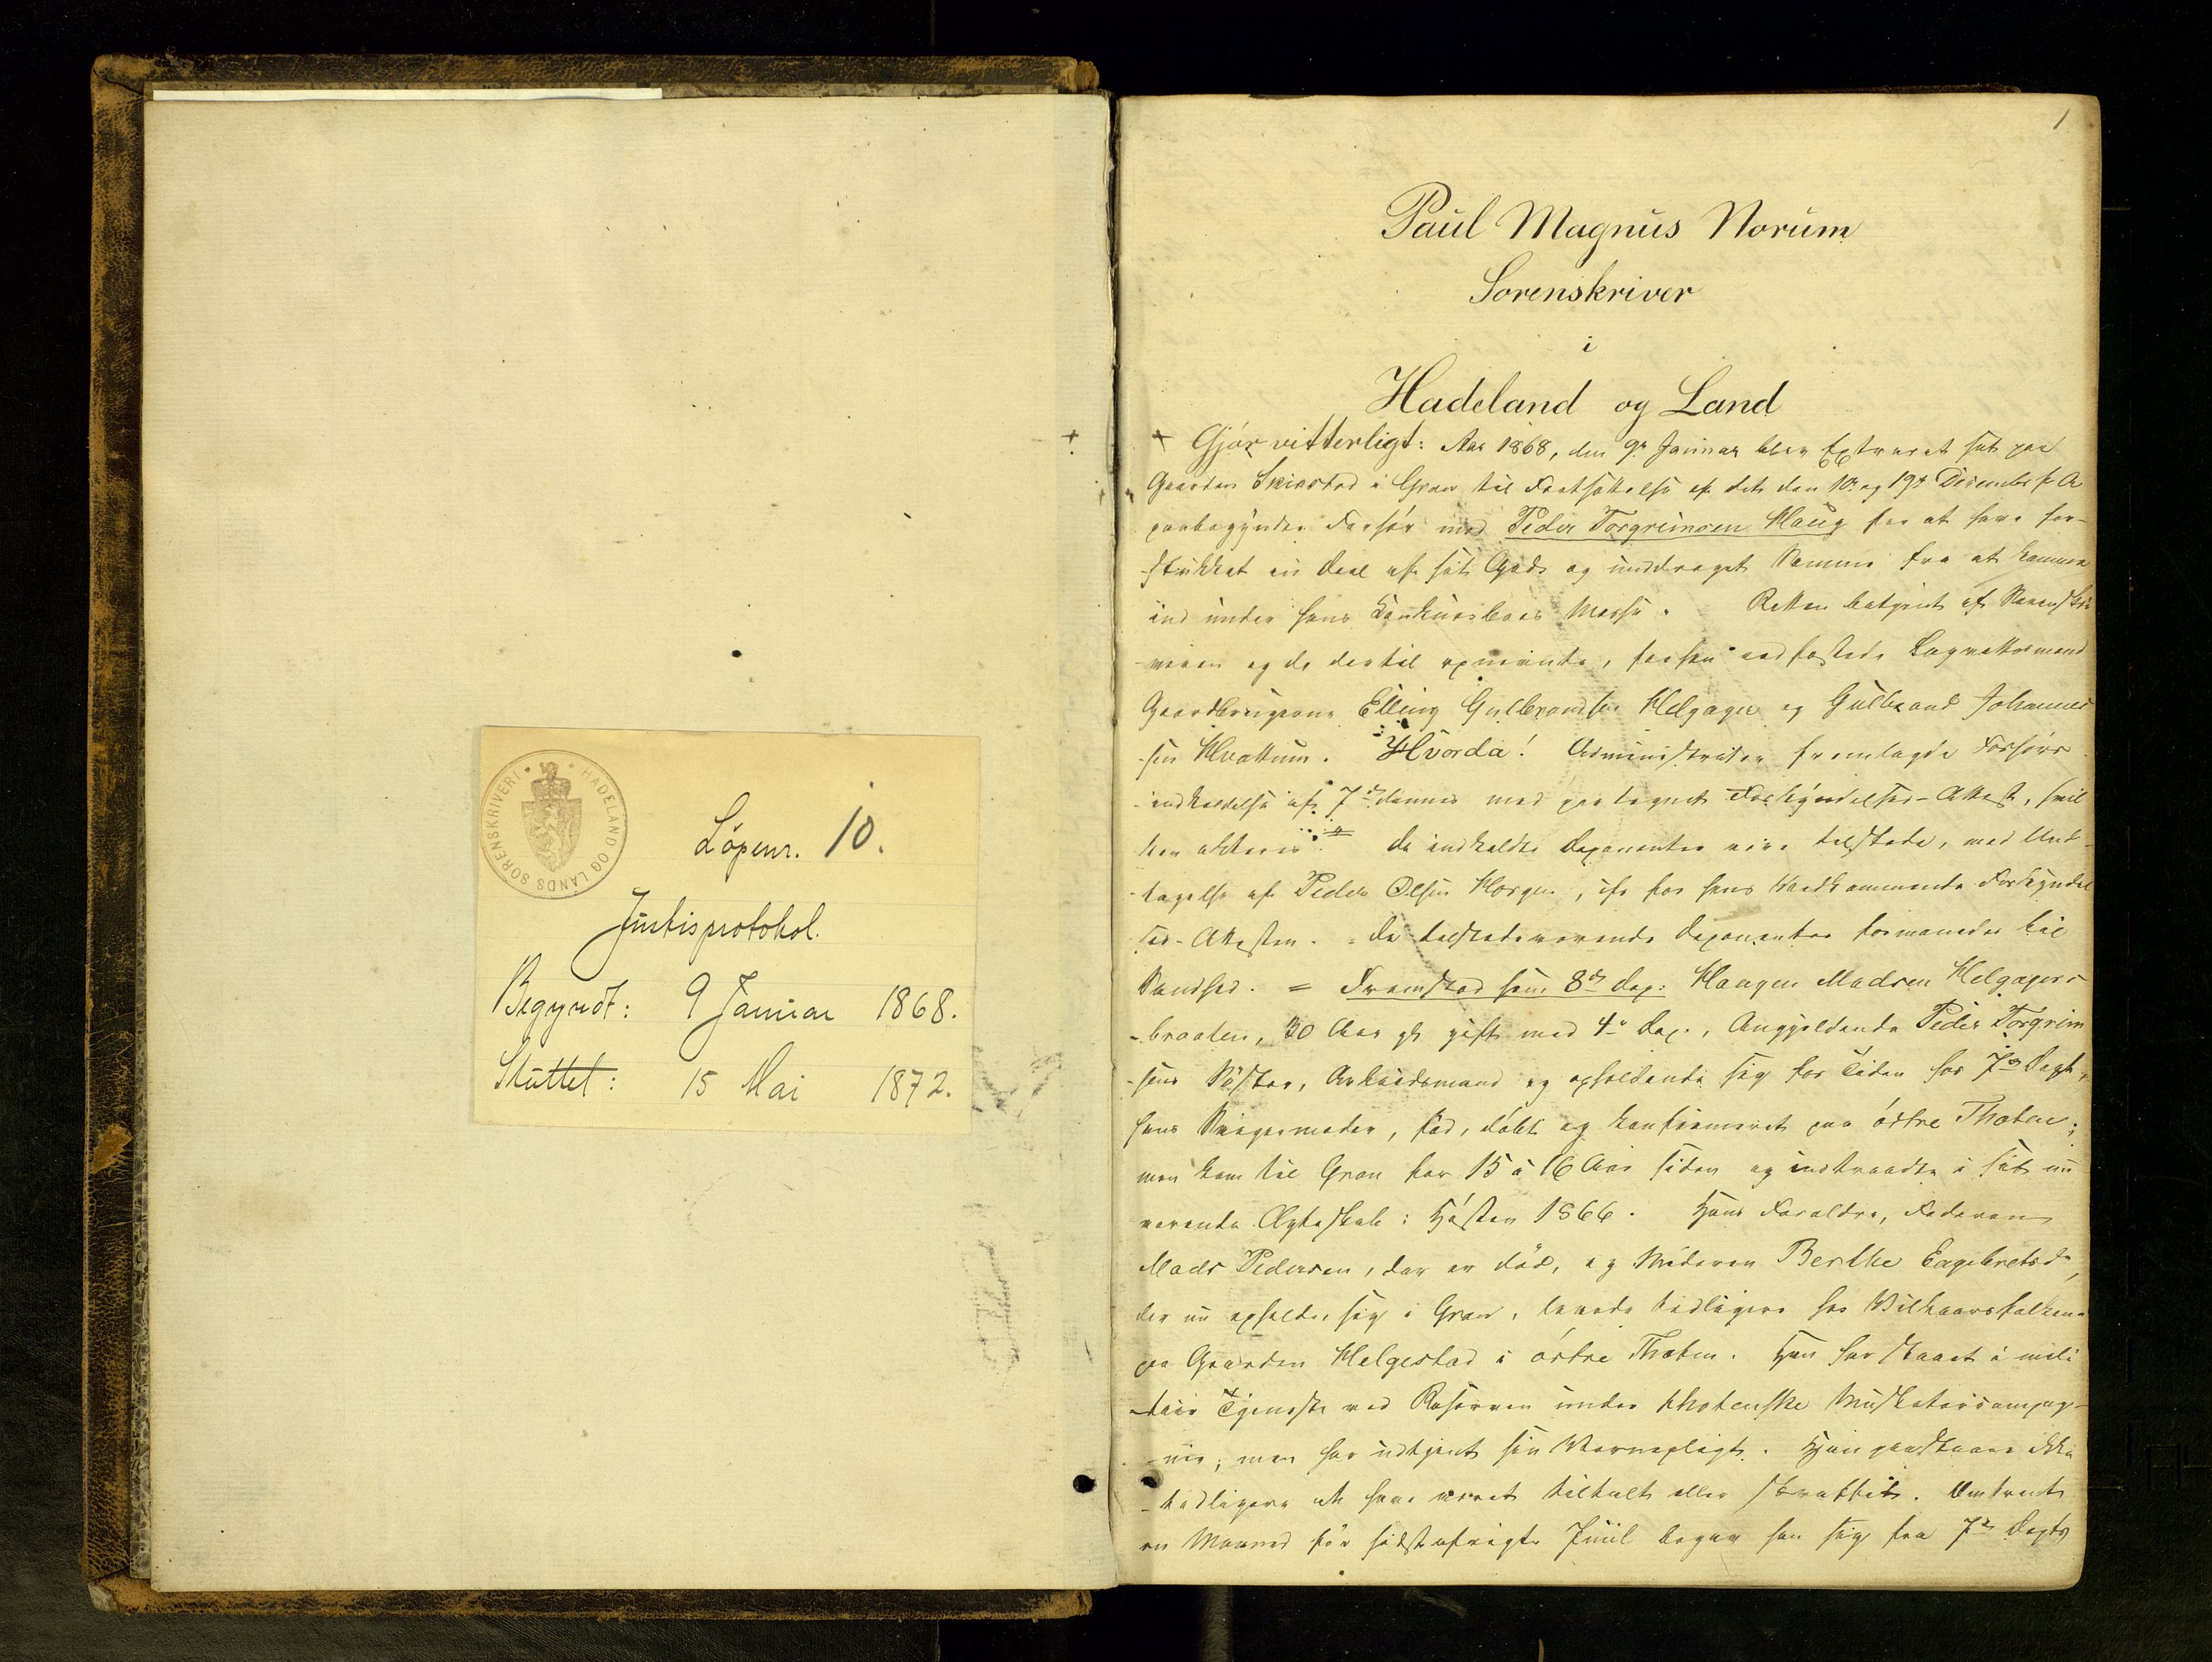 HADELAND OG LANDS SORENSKRIVERI
Löpenr. 10.
Justisprotokol.
Begyndt: 9 Januar 1868.
Sluttet: 15 Mai 1872.
1
Paul Magnus Norum
Sorenskriver
i
Hadeland og Land
Gjør vitterligt: Aar 1868, den 9de Januar blev Extraret sat paa
Gaarden Skiestad i Gran til Fortsættelse af det den 10de og 19de December f. A.
paabegyndte Forhør mod Peder Torgrimsen Haug for at have for-
stukket en Deel af sit Gods og unddraget Samme fra at komme
ind under hans Konkursboes Masse. Retten betjent af Sorenskri-
veren og de dertil opnævnte, forhen edfæstede Lagrettesmænd
Gaardbrugerne Elling Gulbrandsen Helgager og Gulbrand Johannes-
sen Hvattum. Hvorda! Administrator fremlagde Forhørs-
indkaldelse af 7de dennes med paategnet Forkyndelses-Attest, hvil-
ken akteres. De indkaldte Deponenter vare tilstede, med Und-
tagelse af Peder Olsen Horgen, cfr. for hans Vedkommende Forkyndel-
ses-Attesten. = De tilstedeværende Deponenter formanedes til
Sandhed. = Fremstod som 8de Dep: Haagen Madsen Helgagers-
braaten, 30 Aar gl. gift med 4de Dep., Angjeldende Peder Torgrim-
sens Søster, Arbeidsmand og opholdende sig for Tiden hos 7de Dept,
hans Svigermoder, fød, døbt og konfirmeret paa østre Thoten;
men kom til Gran for 15 à 16 Aar siden og indtraadte i sit nu-
værende Ægteskab i Høsten 1866. Hans Forældre, Faderen
Mads Pedersen, der er død, og Moderen Berthe Engebretsd.,
der nu opholder sig i Gran, levede tidligere som Vilkaarsfolkene
paa Gaarden Helgestad i østre Thoten. Han har staaet i mili-
tair Tjeneste ved Reserven under thotenske Musketercompag-
nie, men har udtjent sin Værnepligt. Han paastaaer ikke
tidligere at have været tiltalt eller straffet. Omtrent
en Maaned før sidstafvigte Juul begav han sig fra 7de Depts